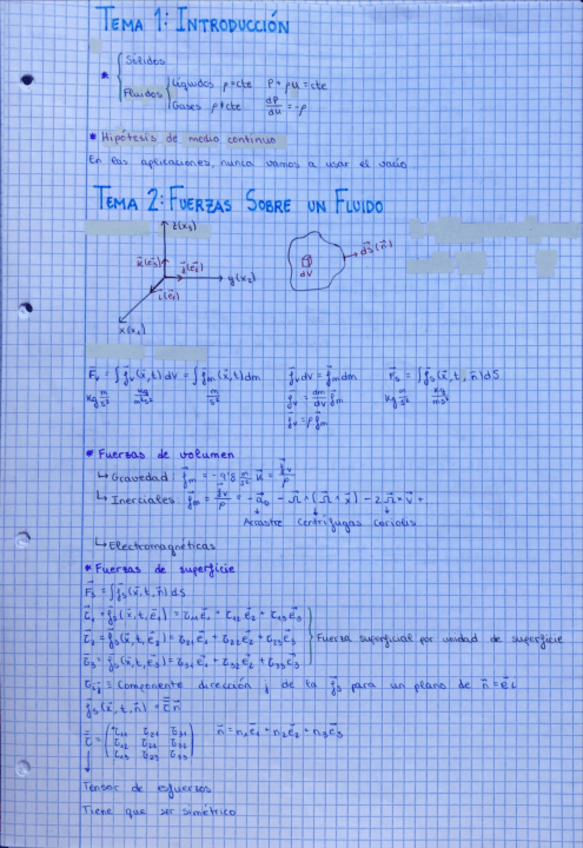 TEMA 1: INTRODUCCIÓN
* { Sólidos
Fluidos { Líquidos ρ=cte P+ρU=cte
Gases ρ≠cte dP/dU = -ρ
* Hipótesis de medio continuo
En las aplicaciones, nunca vamos a usar el vacío
TEMA 2: FUERZAS SOBRE UN FLUIDO
z(x₃)
k⃗(e⃗₃) j⃗(e⃗₂) y(x₂)
i⃗(e⃗₁)
x(x₁)
dV dS(n⃗)
F⃗ᵥ = ∫f⃗ᵥ(x⃗,t)dV = ∫f⃗ₘ(x⃗,t)dm f⃗ᵥdV = f⃗ₘdm F⃗ₛ = ∫f⃗ₛ(x⃗,t,n⃗)dS
kg m/s² kg/m²s² m/s² f⃗ᵥ = dm/dV f⃗ₘ kg m/s² kg/ms²
f⃗ᵥ = ρf⃗ₘ
* Fuerzas de volumen
↳ Gravedad: f⃗ₘ = -9'8 m/s² k⃗ = f⃗ᵥ/ρ
↳ Inerciales: f⃗ₘ = f⃗ᵥ/ρ = -a⃗₀ - Ω⃗∧(Ω⃗∧x⃗) - 2Ω⃗×v⃗ +
Arrastre Centrífugas Coriolis
↳ Electromagnéticas
* Fuerzas de superficie
F⃗ₛ = ∫f⃗ₛ(x⃗,t,n⃗)dS
τ⃗₁ = f⃗ₛ(x⃗,t,e⃗₁) = τ₁₁e⃗₁ + τ₁₂e⃗₂ + τ₁₃e⃗₃
τ⃗₂ = f⃗ₛ(x⃗,t,e⃗₂) = τ₂₁e⃗₁ + τ₂₂e⃗₂ + τ₂₃e⃗₃ } Fuerza superficial por unidad de superficie
τ⃗₃ = f⃗ₛ(x⃗,t,e⃗₃) = τ₃₁e⃗₁ + τ₃₂e⃗₂ + τ₃₃e⃗₃
τᵢⱼ ≡ Componente dirección j de la f⃗ₛ para un plano de n⃗ = e⃗ᵢ
f⃗ₛ(x⃗,t,n⃗) = τ̿n⃗
τ̿ = (τ₁₁ τ₂₁ τ₃₁ n⃗ = n₁e⃗₁ + n₂e⃗₂ + n₃e⃗₃
τ₁₂ τ₂₂ τ₃₂
τ₁₃ τ₂₃ τ₃₃)
↓
Tensor de esfuerzos
Tiene que ser simétrico